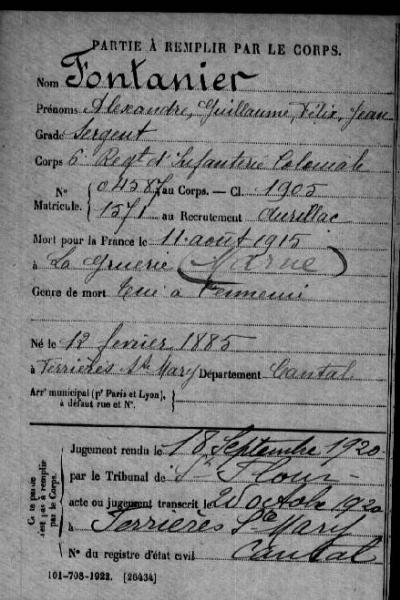 PARTIE À REMPLIR PAR LE CORPS.
Nom Fontanier
Prénoms Alexandre, Guillaume, Félix, Jean
Grade Sergent
Corps 6e Regt d'Infanterie Coloniale
N° 04587 au Corps. — Cl. 1905
Matricule. 1571 au Recrutement Aurillac
Mort pour la France le 11 août 1915
à La Gruerie (Marne)
Genre de mort Tué à l'ennemi
Né le 12 fevrier 1885
à Ferrières Ste Mary Département Cantal
Arrt municipal (pr Paris et Lyon),
à défaut rue et N°.
Cette partie
n'est pas à remplir
par le Corps.
Jugement rendu le 18 Septembre 1920
par le Tribunal de St Flour
acte ou jugement transcrit le 20 octobre 1920
à Ferrières Ste Mary
Cantal
N° du registre d'état civil
101-708-1922. [26434]